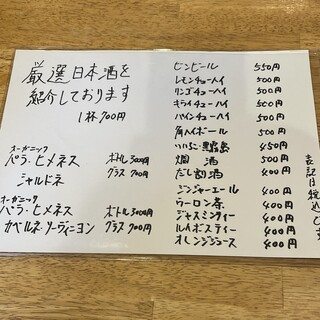 厳選日本酒を
紹介しております
1杯700円
オーガニック
パラ・ヒメネス ボトル3000円
シャルドネ グラス700円
オーガニック
パラ・ヒメネス ボトル3000円
カベルネ・ソーヴィニヨン グラス700円
ビンビール 550円
レモンチューハイ 500円
リンゴチューハイ 500円
キウイチューハイ 500円
パインチューハイ 500円
角ハイボール 500円
いいちこ・黒霧島 450円
燗酒 500円
だし割酒 400円
ジンジャーエール 400円
ウーロン茶 400円
ジャスミンティー 400円
ルイボスティー 400円
オレンジジュース 400円
表記は税込